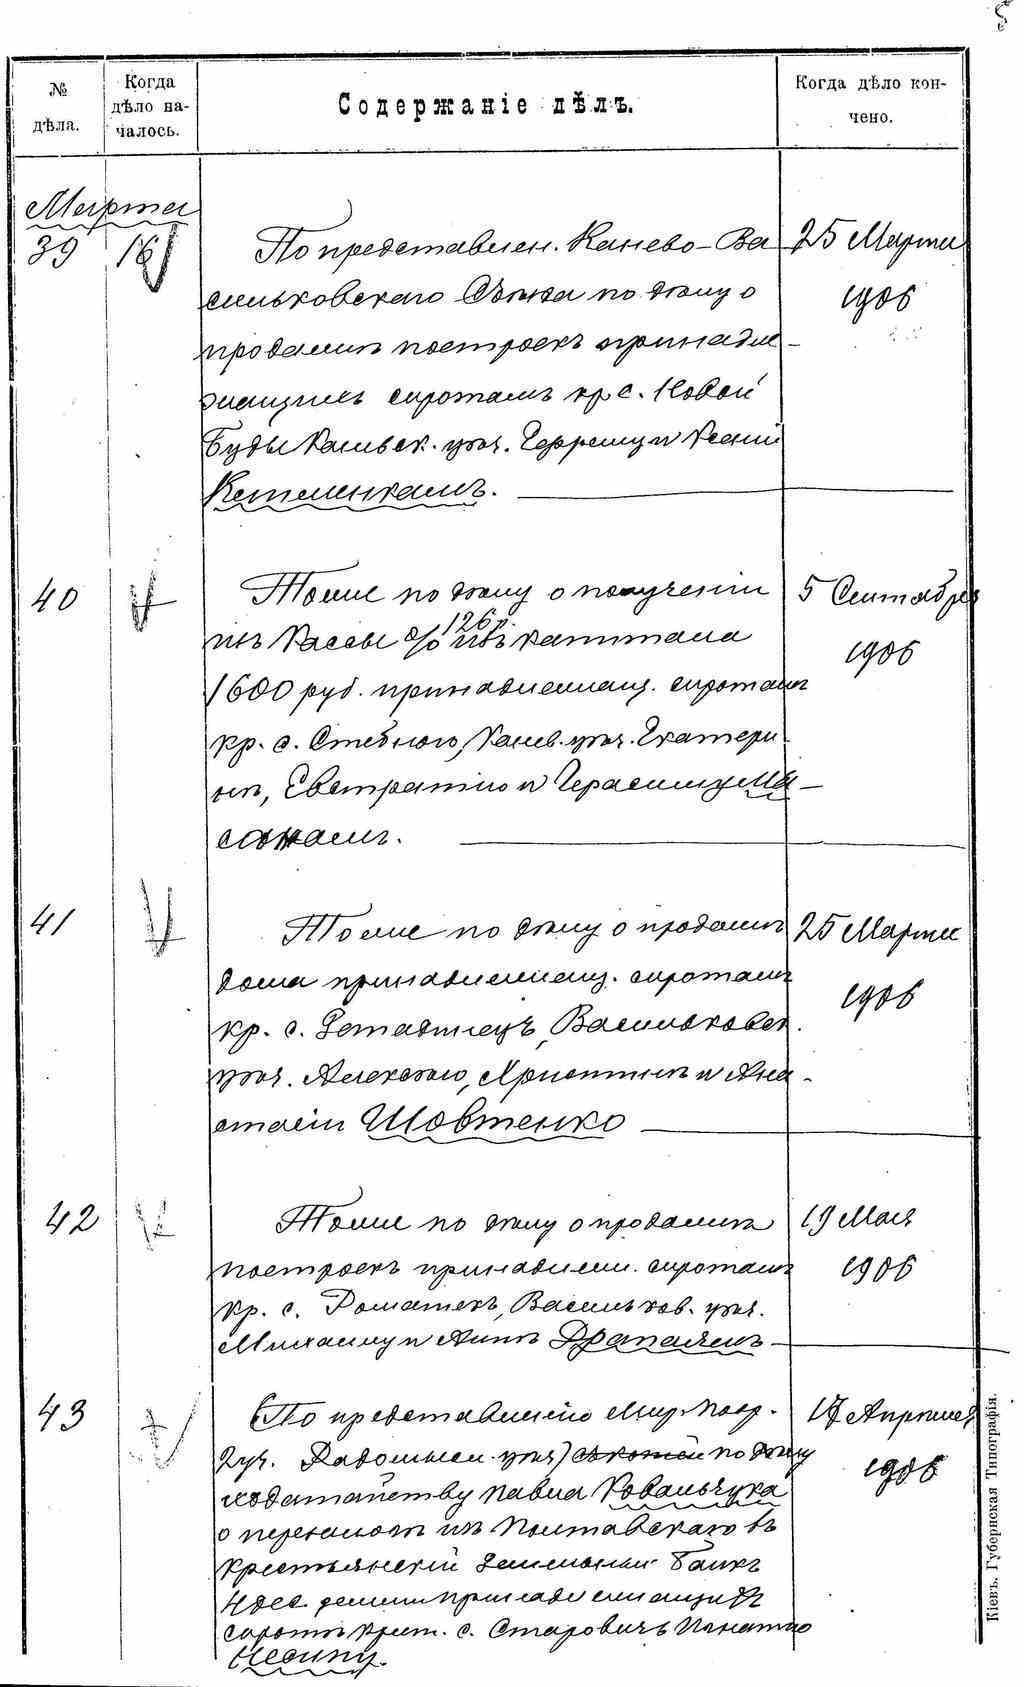 5
№ дѣла.
Когда дѣло на-чалось.
Содержаніе дѣлъ.
Когда дѣло кон-чено.
Марта
39 16 По представлен. Канево-Ва- 25 Марта
сильковскаго Съѣзда по дѣлу о 1906
продажѣ построекъ принадле-
жащихъ сиротамъ кр. с. Новой
Буды Каневск. уѣз. Ефрему и Ксеніи
Кетменкамъ.
40 Тоже по дѣлу о полученіи 5 Сентября
126 р.
изъ Кассы % изъ капитала 1906
1600 руб. принадлежащ. сиротамъ
кр. с. Стебного, Канев. уѣз. Екатери-
нѣ, Евстратію и Герасиму Ма-
41 Тоже по дѣлу о продажѣ 25 Марта
дома принадлежащ. сиротамъ 1906
кр. с. Васильковск.
уѣз. Алексѣю, Христинѣ и Ана-
стасіи Шовтенко
42 Тоже по дѣлу о продажѣ 19 Мая
построекъ принадлеж. сиротамъ 1906
кр. с. Ромашекъ, Васильков. уѣз.
Михаилу и Аннѣ Драпаямъ
43 По представленію Мир. Поср. 17 Апрѣля
2 уч. Радомысл. уѣз) по дѣлу 1906
ходатайству Павла Ковальчука
о переводѣ изъ Полтавскаго въ
Крестьянскій Земельный Банкъ
4 дес. земли принадлежащихъ
сиротѣ крест. с. Старовичъ Игнатію
Несину.
Кіевъ. Губернская Типографія.